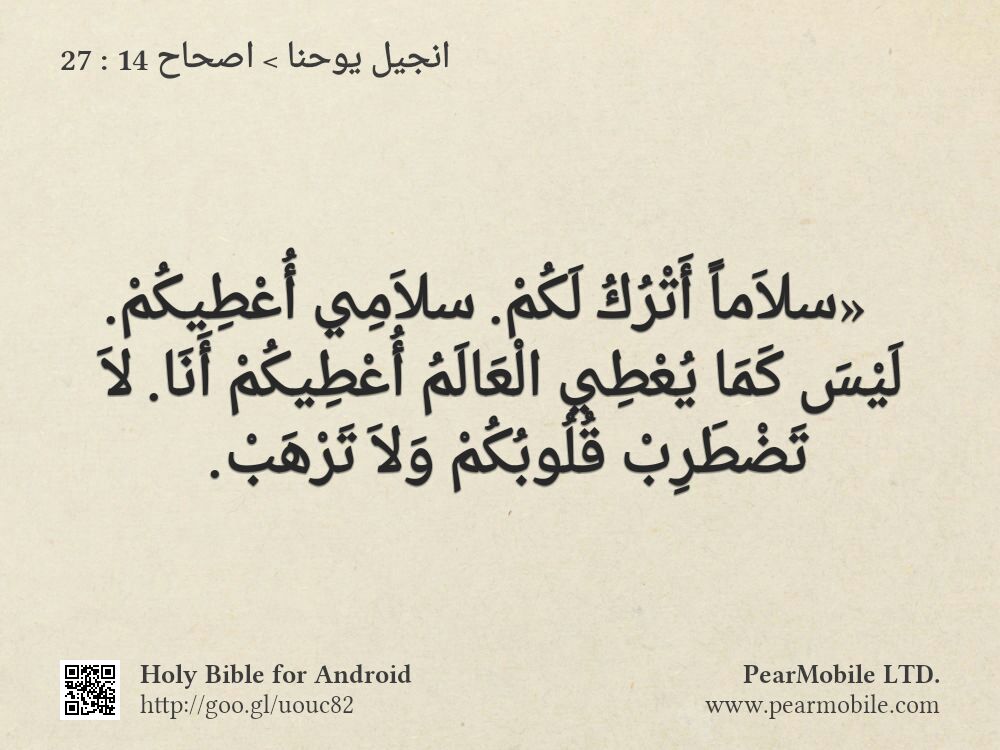 انجيل يوحنا > اصحاح 14 : 27
«سلاَماً أَتْرُكُ لَكُمْ. سلاَمِي أُعْطِيكُمْ.
لَيْسَ كَمَا يُعْطِي الْعَالَمُ أُعْطِيكُمْ أَنَا. لاَ
تَضْطَرِبْ قُلُوبُكُمْ وَلاَ تَرْهَبْ.
Holy Bible for Android
http://goo.gl/uouc82
PearMobile LTD.
www.pearmobile.com